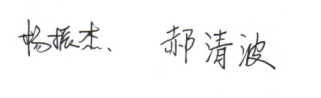 杨振杰、 郝清波